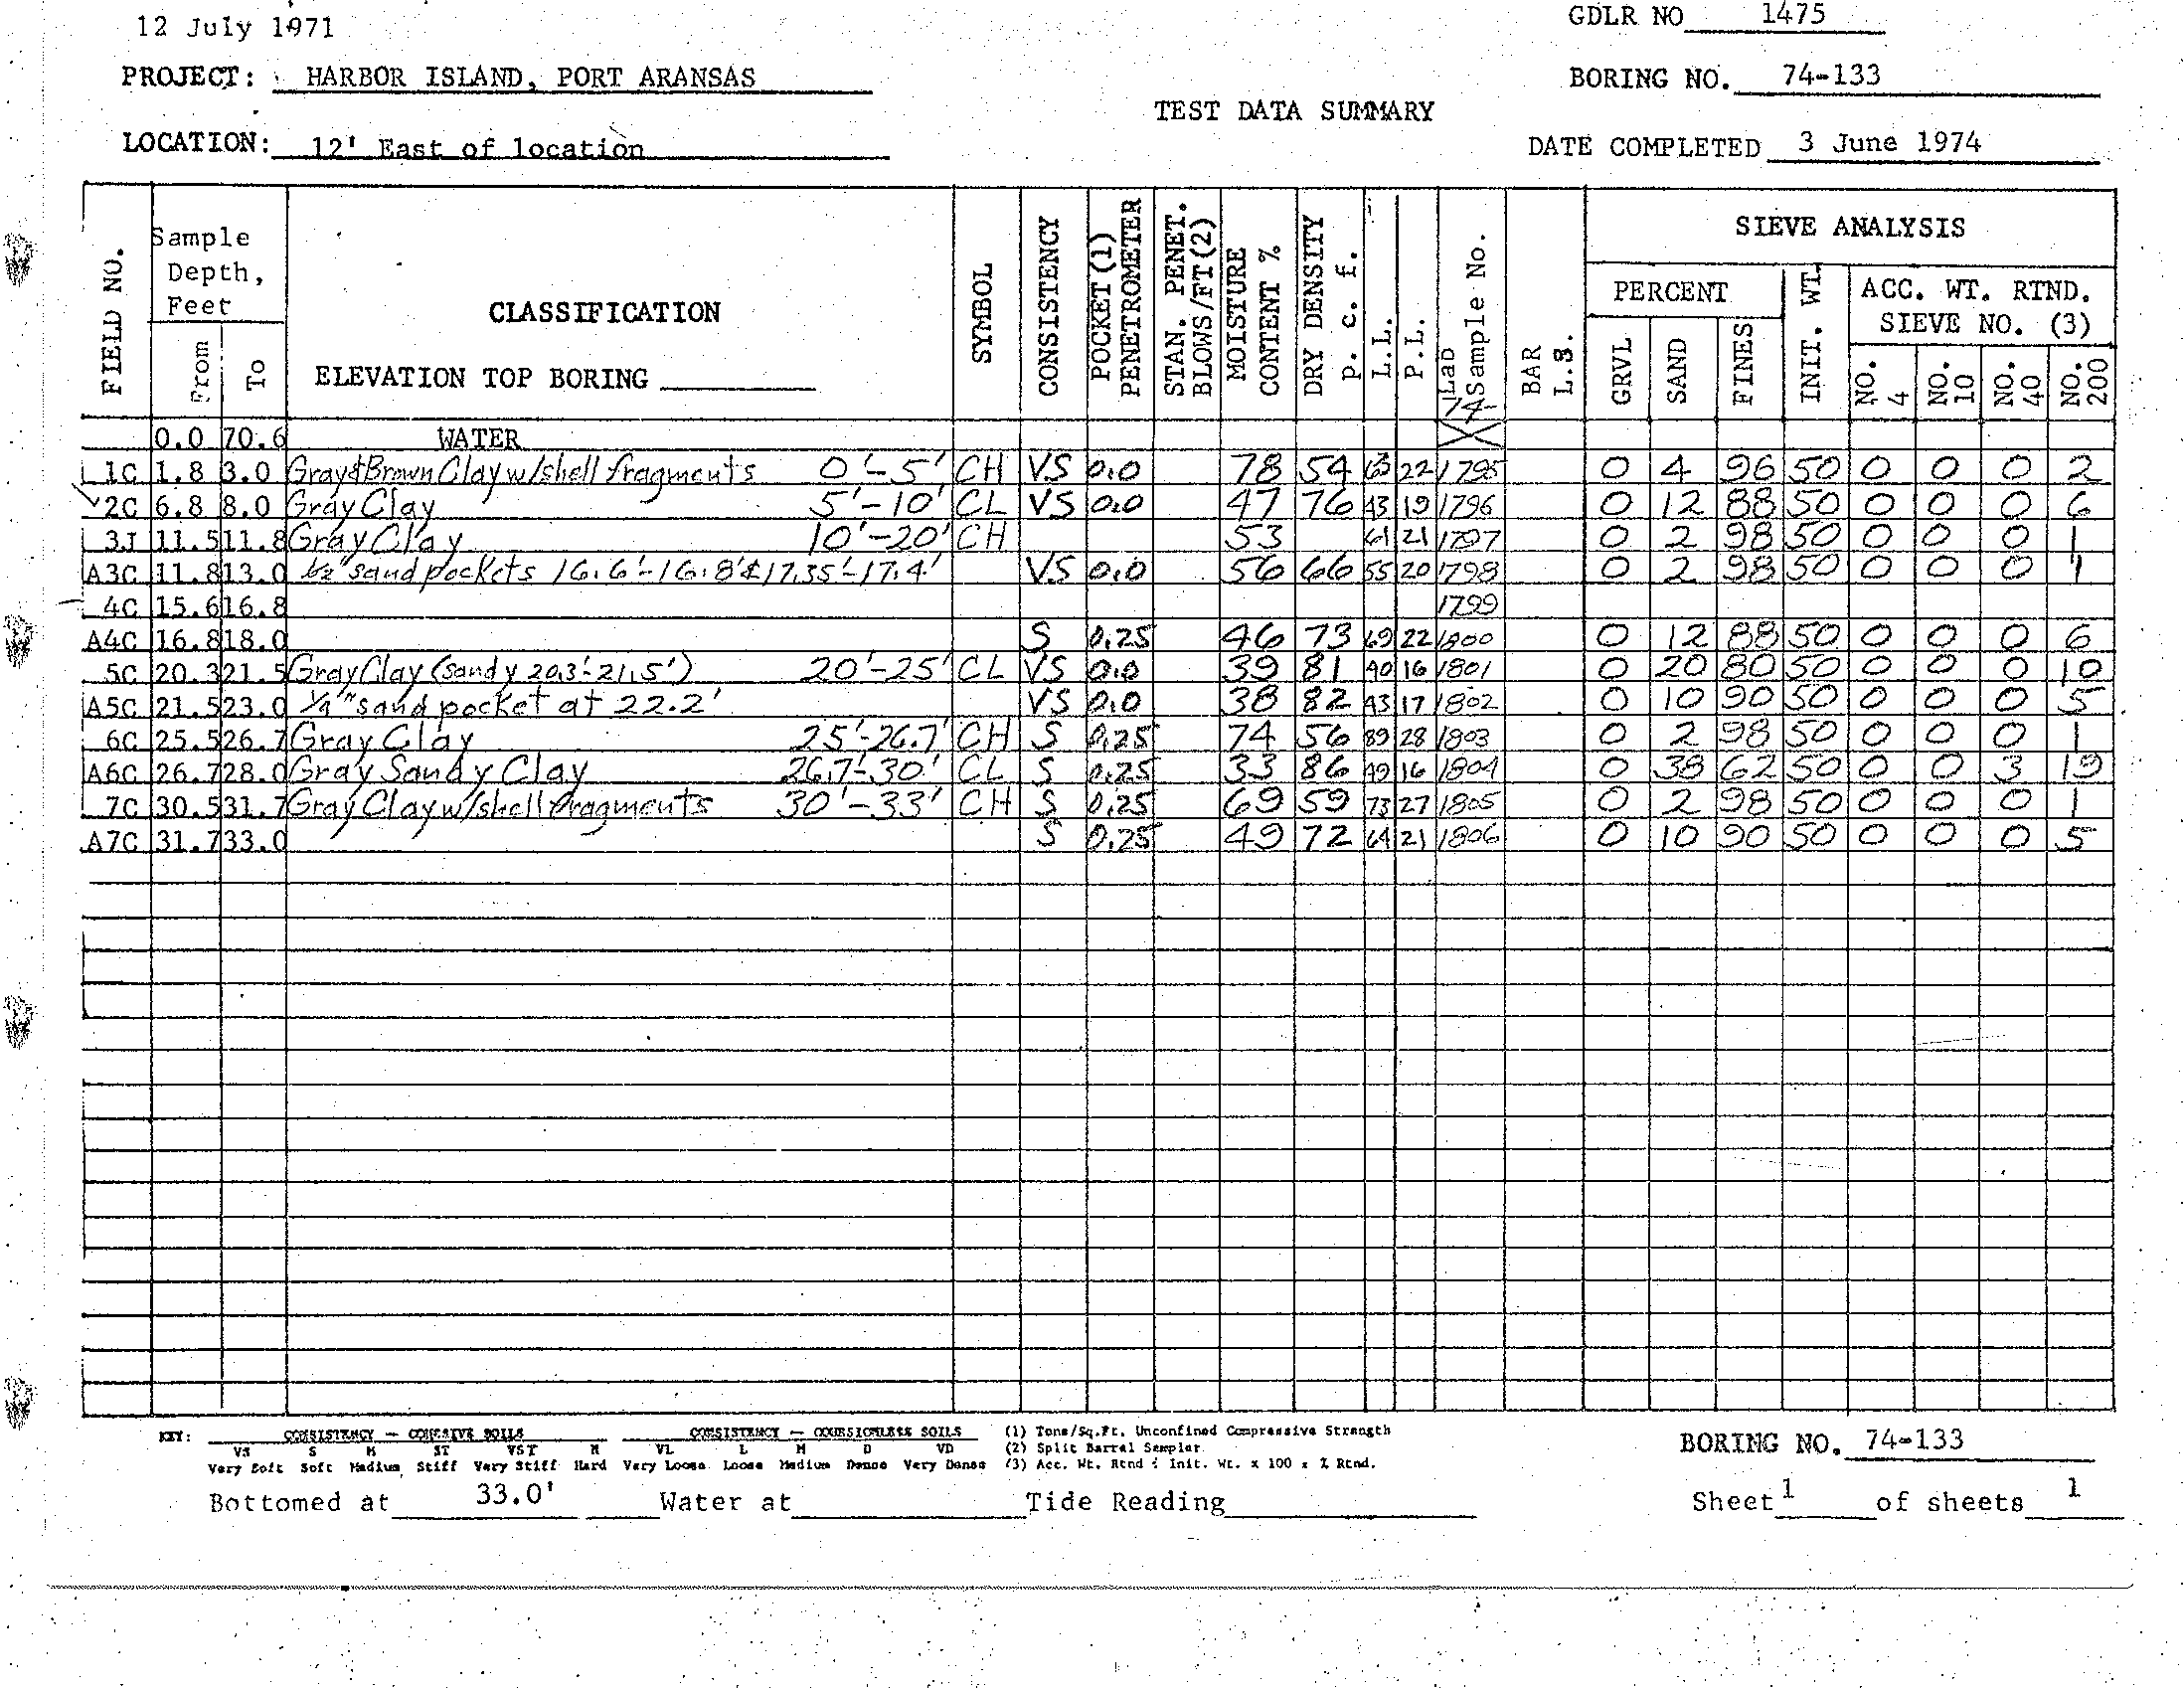 12 July 1971
GDLR NO 1475
PROJECT: HARBOR ISLAND, PORT ARANSAS
BORING NO. 74-133
TEST DATA SUMMARY
LOCATION: 12' East of location
DATE COMPLETED 3 June 1974
FIELD NO.
Sample Depth, Feet
From
To
CLASSIFICATION
ELEVATION TOP BORING
SYMBOL
CONSISTENCY
POCKET (1) PENETROMETER
STAN. PENET. BLOWS/FT(2)
MOISTURE CONTENT %
DRY DENSITY p. c. f.
L.L.
P.L.
Lab Sample No. 74-
BAR L.S.
SIEVE ANALYSIS
PERCENT
GRVL
SAND
FINES
INIT. WT.
ACC. WT. RTND. SIEVE NO. (3)
NO. 4
NO. 10
NO. 40
NO. 200
0.0 70.6 WATER
1C 1.8 3.0 Gray & Brown Clay w/shell fragments 0'-5' CH VS 0.0 78 54 63 22 1795 0 4 96 50 0 0 0 2
2C 6.8 8.0 Gray Clay 5'-10' CL VS 0.0 47 76 43 19 1796 0 12 88 50 0 0 0 6
3J 11.5 11.8 Gray Clay 10'-20' CH 53 61 21 1797 0 2 98 50 0 0 0 1
A3C 11.8 13.0 1/2" sand pockets 16.6'-16.8' & 17.35'-17.4' VS 0.0 56 66 55 20 1798 0 2 98 50 0 0 0 1
4C 15.6 16.8 1799
A4C 16.8 18.0 S 0.25 46 73 69 22 1800 0 12 88 50 0 0 0 6
5C 20.3 21.5 Gray Clay (sandy 20.3'-21.5') 20'-25' CL VS 0.0 39 81 40 16 1801 0 20 80 50 0 0 0 10
A5C 21.5 23.0 1/4" sand pocket at 22.2' VS 0.0 38 82 43 17 1802 0 10 90 50 0 0 0 5
6C 25.5 26.7 Gray Clay 25'-26.7' CH S 0.25 74 56 89 28 1803 0 2 98 50 0 0 0 1
A6C 26.7 28.0 Gray Sandy Clay 26.7'-30' CL S 0.25 33 86 49 16 1804 0 38 62 50 0 0 3 19
7C 30.5 31.7 Gray Clay w/shell fragments 30'-33' CH S 0.25 69 59 73 27 1805 0 2 98 50 0 0 0 1
A7C 31.7 33.0 S 0.25 49 72 64 21 1806 0 10 90 50 0 0 0 5
KEY: CONSISTENCY - COHESIVE SOILS CONSISTENCY - COHESIONLESS SOILS (1) Tons/Sq.Ft. Unconfined Compressive Strength
VS S M ST VST H VL L M D VD (2) Split Barrel Sampler
Very Soft Soft Medium Stiff Very Stiff Hard Very Loose Loose Medium Dense Very Dense (3) Acc. Wt. Rtnd ÷ Init. Wt. x 100 = % Rtnd.
BORING NO. 74-133
Bottomed at 33.0' Water at Tide Reading
Sheet 1 of sheets 1